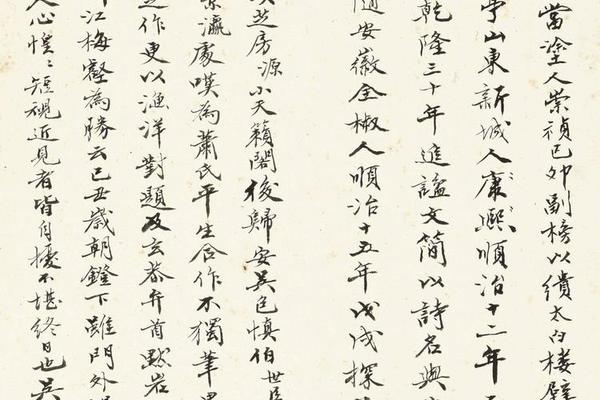 當塗人崇禎己卯副榜以繢太白樓壁
亭山東新城人康熙順治十二年
乾隆三十年進謚文簡以詩名與
隨安徽全椒人順治十五年戊戌探
芝房源小天籟閣後歸安吳邑慎伯世
瀛處嘆為蕭氏平生合作不獨筆
之作更以漁洋對題及玄恭弁首默岩
江梅壑為勝云己丑歲朝鐙下雖門外
人心惶〻短視近見者皆自擾不堪終日也吳